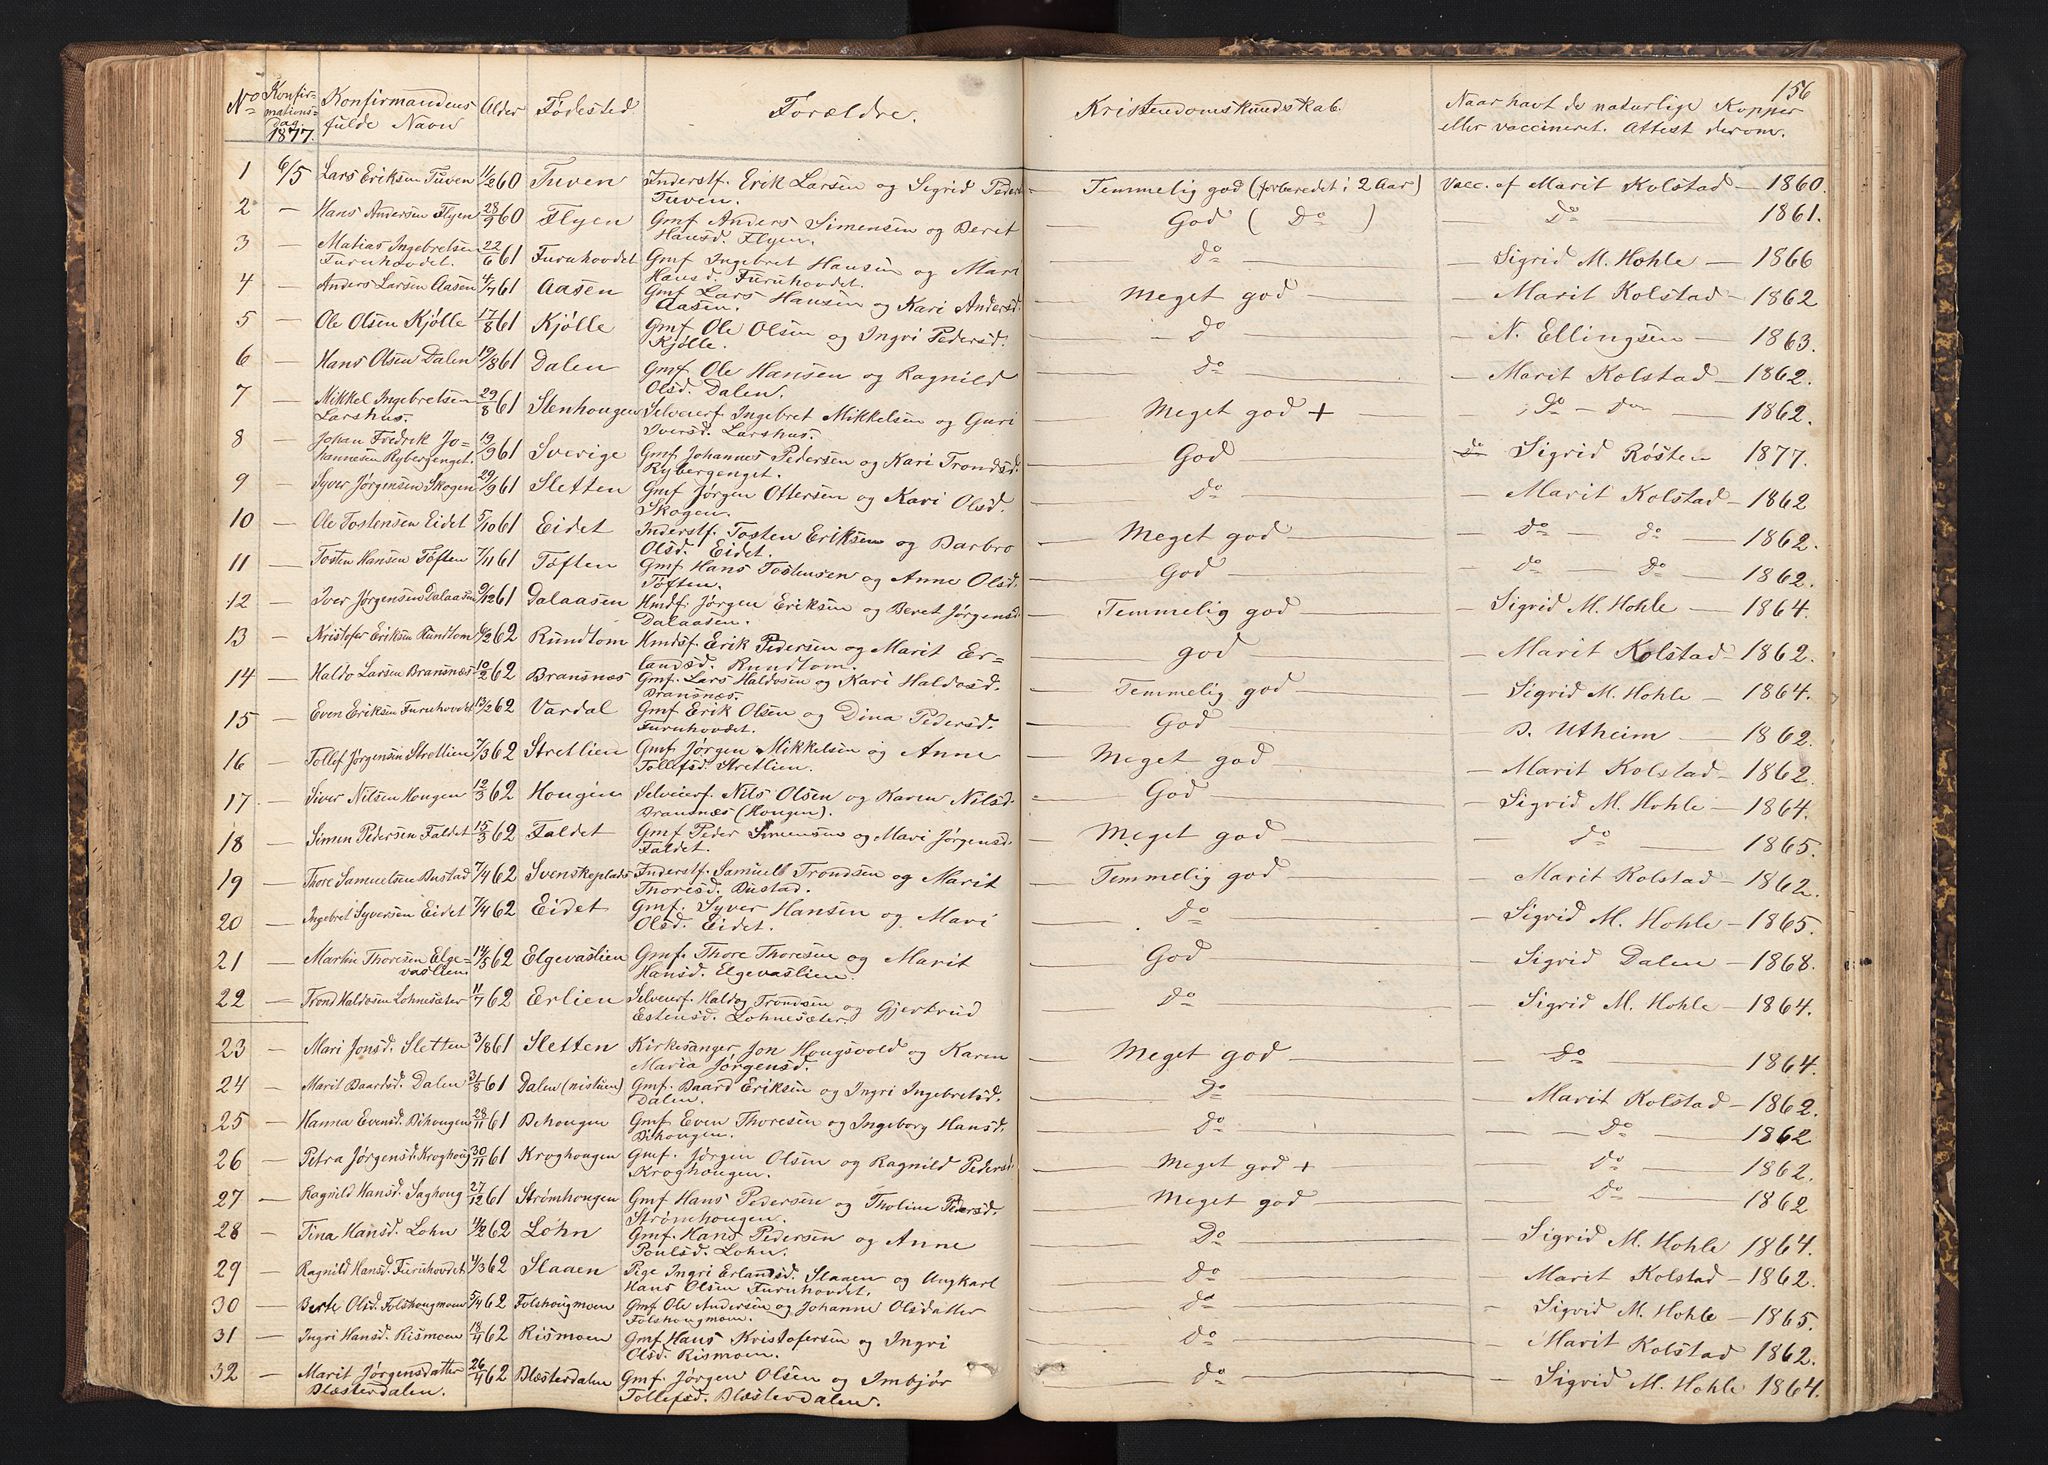 156
No Konfirmationsdag. 1877. Konfirmandens fulde Navn Alder Fødested. Forældre. Kristendomskundskab. Naar havt de naturlige Kopper eller vaccineret. Attest derom.
1 6/5 Lars Eriksen Tuven 11/2 60 Tuven Inderstf. Erik Larsen og Sigrid Peders Tuven. — Temmelig god (forberedet i 2 Aar) Vacc. af Marit Kolstad — 1860.
2 — Hans Andersen Flyen 28/9 60 Flyen Gmf Anders Simensen og Beret Hansd. Flyen. — God ( Do ) — Do — 1861.
3 — Matias Ingebretsen Furuhovdet. 22/6 61 Furuhovdet Gmf Ingebret Hansen og Mari Hansd. Furuhovdet. — Do — Sigrid M. Hohle — 1866
4 — Anders Larsen Aasen 4/7 61 Aasen Gmf Lars Hansen og Kari Andersd. Aasen. — Meget god — Marit Kolstad — 1862
5 — Ole Olsen Kjølle 17/8 61 Kjølle Gmf Ole Olsen og Ingri Pedersd. Kjølle. — do — N. Ellingsen — 1863.
6 — Hans Olsen Dalen 19/8 61 Dalen Gmf Ole Hansen og Ragnild Olsd. Dalen. — do — Marit Kolstad — 1862.
7 — Mikkel Ingebretsen Larshus. 29/8 61 Stenhougen Selveierf. Ingebret Mikkelsen og Guri Iversd. Larshus. — Meget god + — Do — do — 1862.
8 — Johan Fredrik Johannesen Rybergenget. 19/9 61 Sverige Gmf Johannes Pedersen og Kari Trondsd. Rybergenget. — God — do Sigrid Røsten 1877.
9 — Syver Jørgensen Skogen 29/9 61 Sletten Gmf Jørgen Ottersen og Kari Olsd. Skogen. — do — Marit Kolstad — 1862
10 — Ole Tostensen Eidet 5/10 61 Eidet Inderstf. Tosten Eriksen og Barbro Olsd. Eidet. — Meget god — Do — do — 1862.
11 — Tosten Hansen Tøften 7/11 61 Tøften Gmf Hans Tostensen og Anne Olsd. Tøften. — God — Do — Do — 1862.
12 — Iver Jørgensen Dalaasen 9/12 61 Dalaasen Hmdf. Jørgen Eriksen og Beret Jørgensd. Dalaasen. — Temmelig god — Sigrid M. Hohle — 1864.
13 — Kristofer Eriksen Rundtom 6/2 62 Rundtom Hmdsf. Erik Pedersen og Marit Erlandsd. Rundtom. — god — Marit Kolstad — 1862.
14 — Haldo Larsen Bransnæs 10/2 62 Bransnæs Gmf. Lars Haldosen og Kari Haldosd. Bransnæs. — Temmelig god — Sigrid M. Hohle — 1864.
15 — Even Eriksen Furuhovdet 13/2 62 Vardal Gmf Erik Olsen og Dina Pedersd. Furuhovdet. — God — B. Utheim — 1862.
16 — Tollef Jørgensen Stretlien 7/3 62 Stretlien Gmf Jørgen Mikkelsen og Anne Tollefsd. Stretlien. — Meget god — Marit Kolstad — 1862
17 — Siver Nilsen Hougen 12/3 62 Hougen Selveierf. Nils Olsen og Karen Nilsd. Bransnæs (Hougen). — God — Sigrid M. Hohle — 1864.
18 — Simen Pedersen Faldet 15/3 62 Faldet Gmf Peder Simensen og Mari Jørgensd. Faldet. — Meget god — do — 1865.
19 — Thore Samuelsen Bustad 7/4 62 Svenskeplads Inderstf. Samuel Trondsen og Marit Thoresd. Bustad. — Temmelig god — Marit Kolstad — 1862.
20 — Ingebret Syversen Eidet 7/4 62 Eidet Gmf. Syver Hansen og Mari Olsd. Eidet. — Do — Sigrid M. Hohle — 1865.
21 — Martin Thoresen Elgevaslien. 14/5 62 Elgevaslien Gmf. Thore Thoresen og Marit Hansd. Elgevaslien. — God — Sigrid Dalen — 1868.
22 — Trond Haldosen Lohnesæter 11/7 62 Erlien Selveierf. Haldog Trondsen og Gjertrud Estensd. Lohnesæter — do — Sigrid M. Hohle — 1864.
23 — Mari Jonsd. Sletten 3/8 61 Sletten Kirkesanger Jon Hougsvold og Karen Maria Jørgensd. — Meget god — Do — 1864.
24 — Marit Baardsd. Dalen 31/8 61 Dalen (nistuen) Gmf. Baard Eriksen og Ingri Ingebretsd. Dalen. — Do — Marit Kolstad — 1862.
25 — Hanna Evensd. Bihougen 28/11 61 Behougen Gmf Even Thoresen og Ingeborg Hansd. Bihougen. — do — do — 1862
26 — Petra Jørgensd. Kroghoug 30/11 61 Kroghougen Gmf. Jørgen Olsen og Ragnild Pedersd. Kroghougen. — Meget god + — do — 1862.
27 — Ragnild Hansd. Saghoug 27/12 61 Strømhougen Gmf Hans Pedersen og Tholine Pedersd. Strømhougen. — Meget god — do — 1862
28 — Tina Hansd. Lohn 11/2 62 Lohn Gmf. Hans Pedersen og Anne Poulsd. Lohn. — Do — Sigrid M. Hohle 1864.
29 — Ragnild Hansd. Furuhovdet 11/3 62 Slaaen Pige Ingri Erlandsd. Slaaen og Ungkarl Hans Olsen Furuhovdet. — do — Marit Kolstad — 1862.
30 — Berte Olsd. Folshougmoen 5/4 62 Folshougmoen Gmf Ole Andersen og Johanne Olsdatter Folshougmoen. — do — Sigrid M. Hohle — 1865.
31 — Ingri Hansd. Rismoen 18/4 62 Rismoen Gmf Hans Kristofersen og Ingri Olsd. Rismoen. — do — Marit Kolstad 1862.
32 — Marit Jørgensdatter Blæsterdalen. 26/4 62 Blæsterdalen Gmf. Jørgen Olsen og Imbjør Tollefsd. Blæsterdalen. — do — Sigrid M. Hohle 1864.